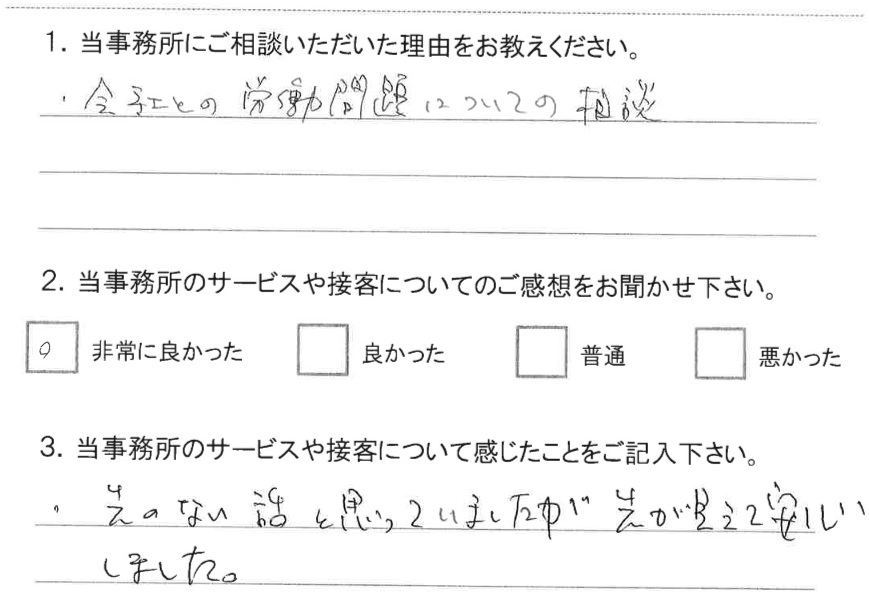 1. 当事務所にご相談いただいた理由をお教えください。
・会社との労働問題についての相談
2. 当事務所のサービスや接客についてのご感想をお聞かせ下さい。
○ 非常に良かった 良かった 普通 悪かった
3. 当事務所のサービスや接客について感じたことをご記入下さい。
・先のない話と思っていましたが先が見えて安心
しました。